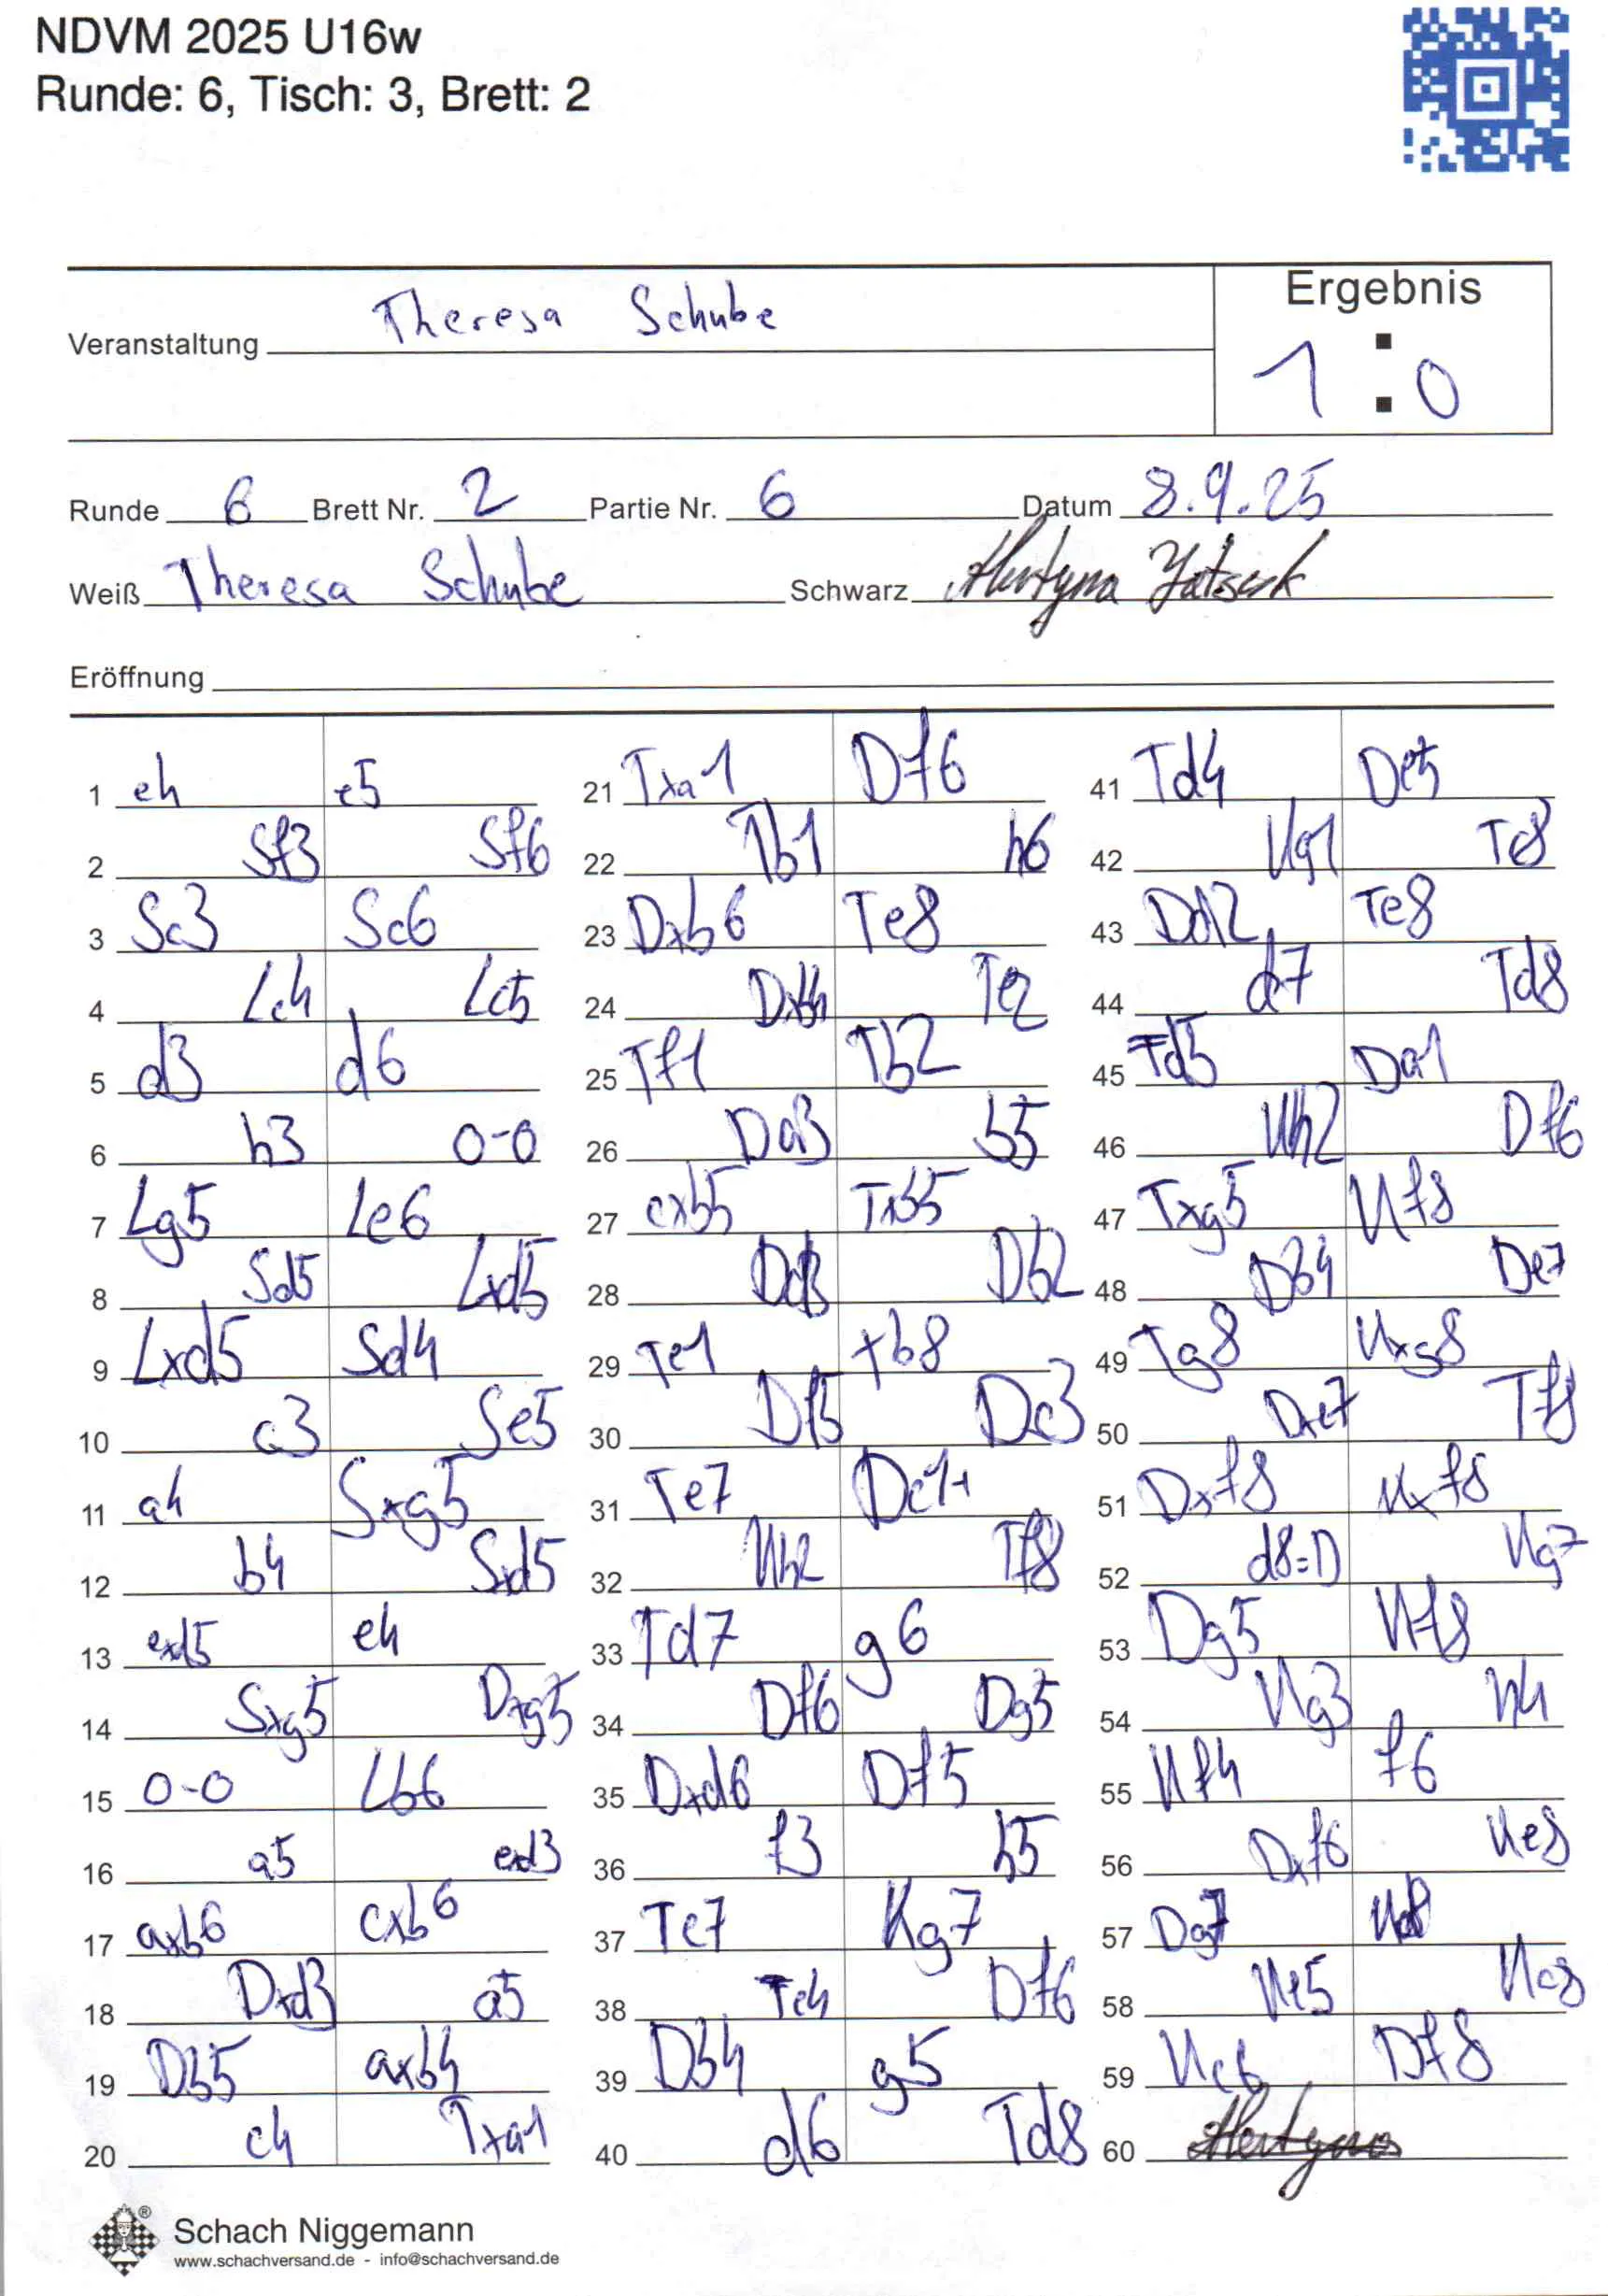 NDVM 2025 U16w
Runde: 6, Tisch: 3, Brett: 2
Ergebnis
Veranstaltung Theresa Schube
1 : 0
Runde 6 Brett Nr. 2 Partie Nr. 6 Datum 8.9.25
Weiß Theresa Schube Schwarz
Eröffnung
1 e4 e5 21 Txa1 Df6 41 Td4 De5
2 Sf3 Sf6 22 Tb1 h6 42 Kg1 Tc8
3 Sc3 Sc6 23 Dxb6 Te8 43 Dd2 Te8
4 Lc4 Lc5 24 Dxb4 Te2 44 d7 Td8
5 d3 d6 25 Tf1 Tb2 45 Td5 Da1
6 h3 0-0 26 Da3 b5 46 Kh2 Df6
7 Lg5 Le6 27 cxb5 Txb5 47 Txg5 Kf8
8 Sd5 Lxd5 28 Dd3 Db2 48 Db4 De7
9 Lxd5 Sd4 29 Te1 Tb8 49 Tg8 Kxg8
10 c3 Se5 30 Df5 Dc3 50 Dxe7 Tf8
11 a4 Sxg5 31 Te7 Dc1+ 51 Dxf8 Kxf8
12 b4 Sxd5 32 Kh2 Tf8 52 d8=D Kg7
13 exd5 e4 33 Td7 g6 53 Dg5 Kf8
14 Sxg5 Dxg5 34 Df6 Dg5 54 Kg3 h4
15 0-0 Lb6 35 Dxd6 Df5 55 Kf4 f6
16 a5 exd3 36 f3 h5 56 Dxf6 Ke8
17 axb6 cxb6 37 Te7 Kg7 57 Dg7 Kd8
18 Dxd3 a5 38 Te4 Df6 58 Ke5 Kc8
19 Db5 axb4 39 Db4 g5 59 Kc6 Df8
20 c4 Txa1 40 d6 Td8 60
Schach Niggemann
www.schachversand.de - info@schachversand.de